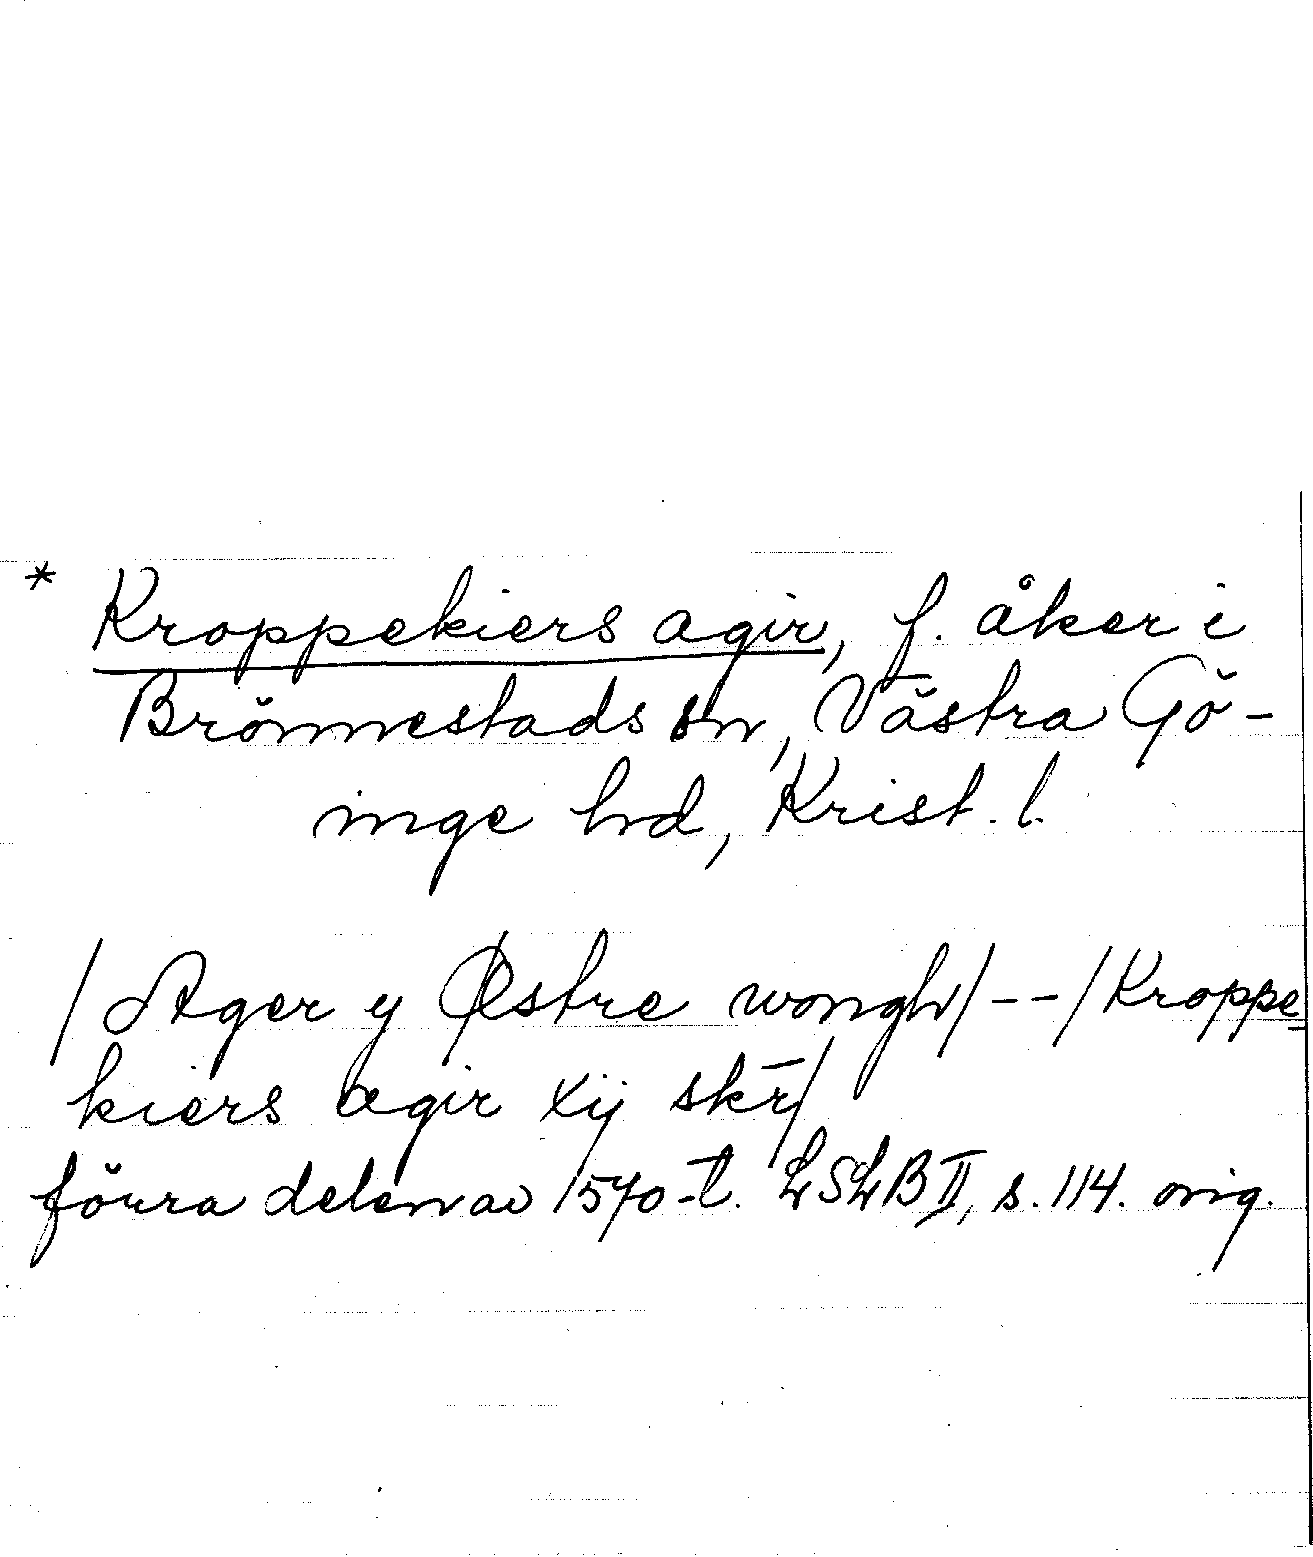 * Kroppekiers agir, f. åker i
Brönnestads sn, Västra Gö-
inge hd, Krist. l.
/Ager y Østre wongh/--/Kroppe=
kiers agir xij skr̄/
förra delen av 1570-t. LSLB II, s. 114. orig.